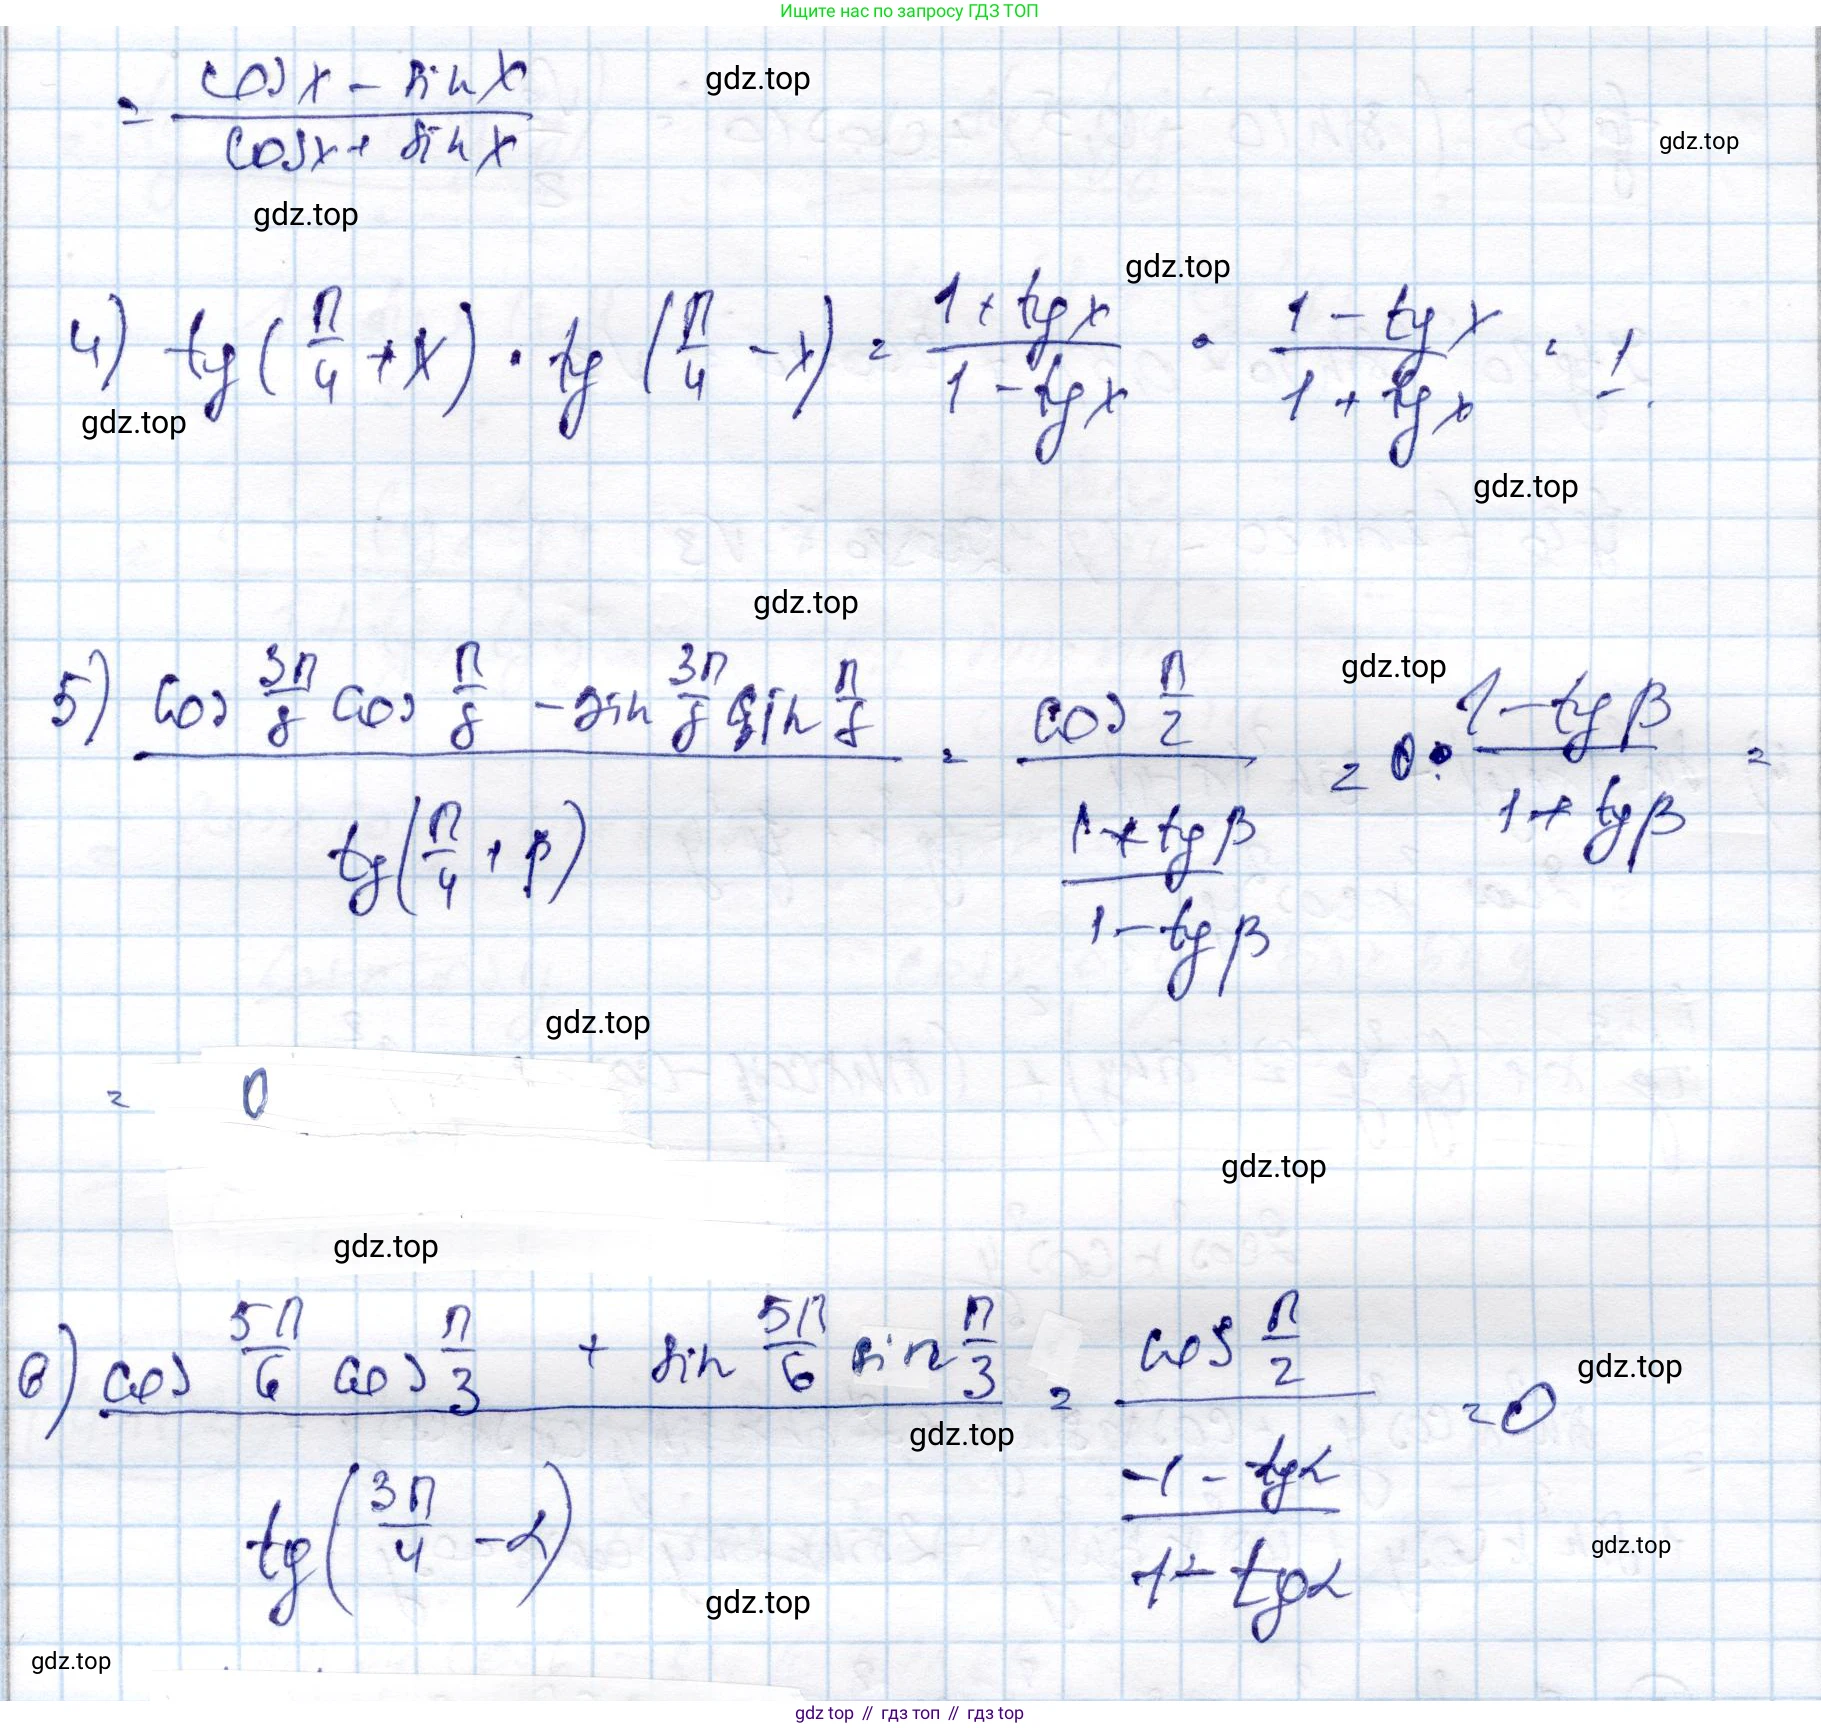 Ищите нас по запросу ГДЗ ТОП
= (cos x - sin x)/(cos x + sin x)
gdz.top
gdz.top
gdz.top
4) tg(π/4 + x) · tg(π/4 - x) = (1 + tg x)/(1 - tg x) · (1 - tg x)/(1 + tg x) = 1.
gdz.top
gdz.top
gdz.top
gdz.top
gdz.top
5) (cos 3π/8 cos π/8 - sin 3π/8 sin π/8)/(tg(π/4 + β)) = (cos π/2)/((1 + tg β)/(1 - tg β)) = 0 · (1 - tg β)/(1 + tg β) =
gdz.top
= 0
gdz.top
gdz.top
6) (cos 5π/6 cos π/3 + sin 5π/6 sin π/3)/(tg(3π/4 - α)) = (cos π/2)/((-1 - tg α)/(1 - tg α)) = 0
gdz.top
gdz.top
gdz.top
gdz.top
gdz.top
gdz top // гдз топ // гдз top